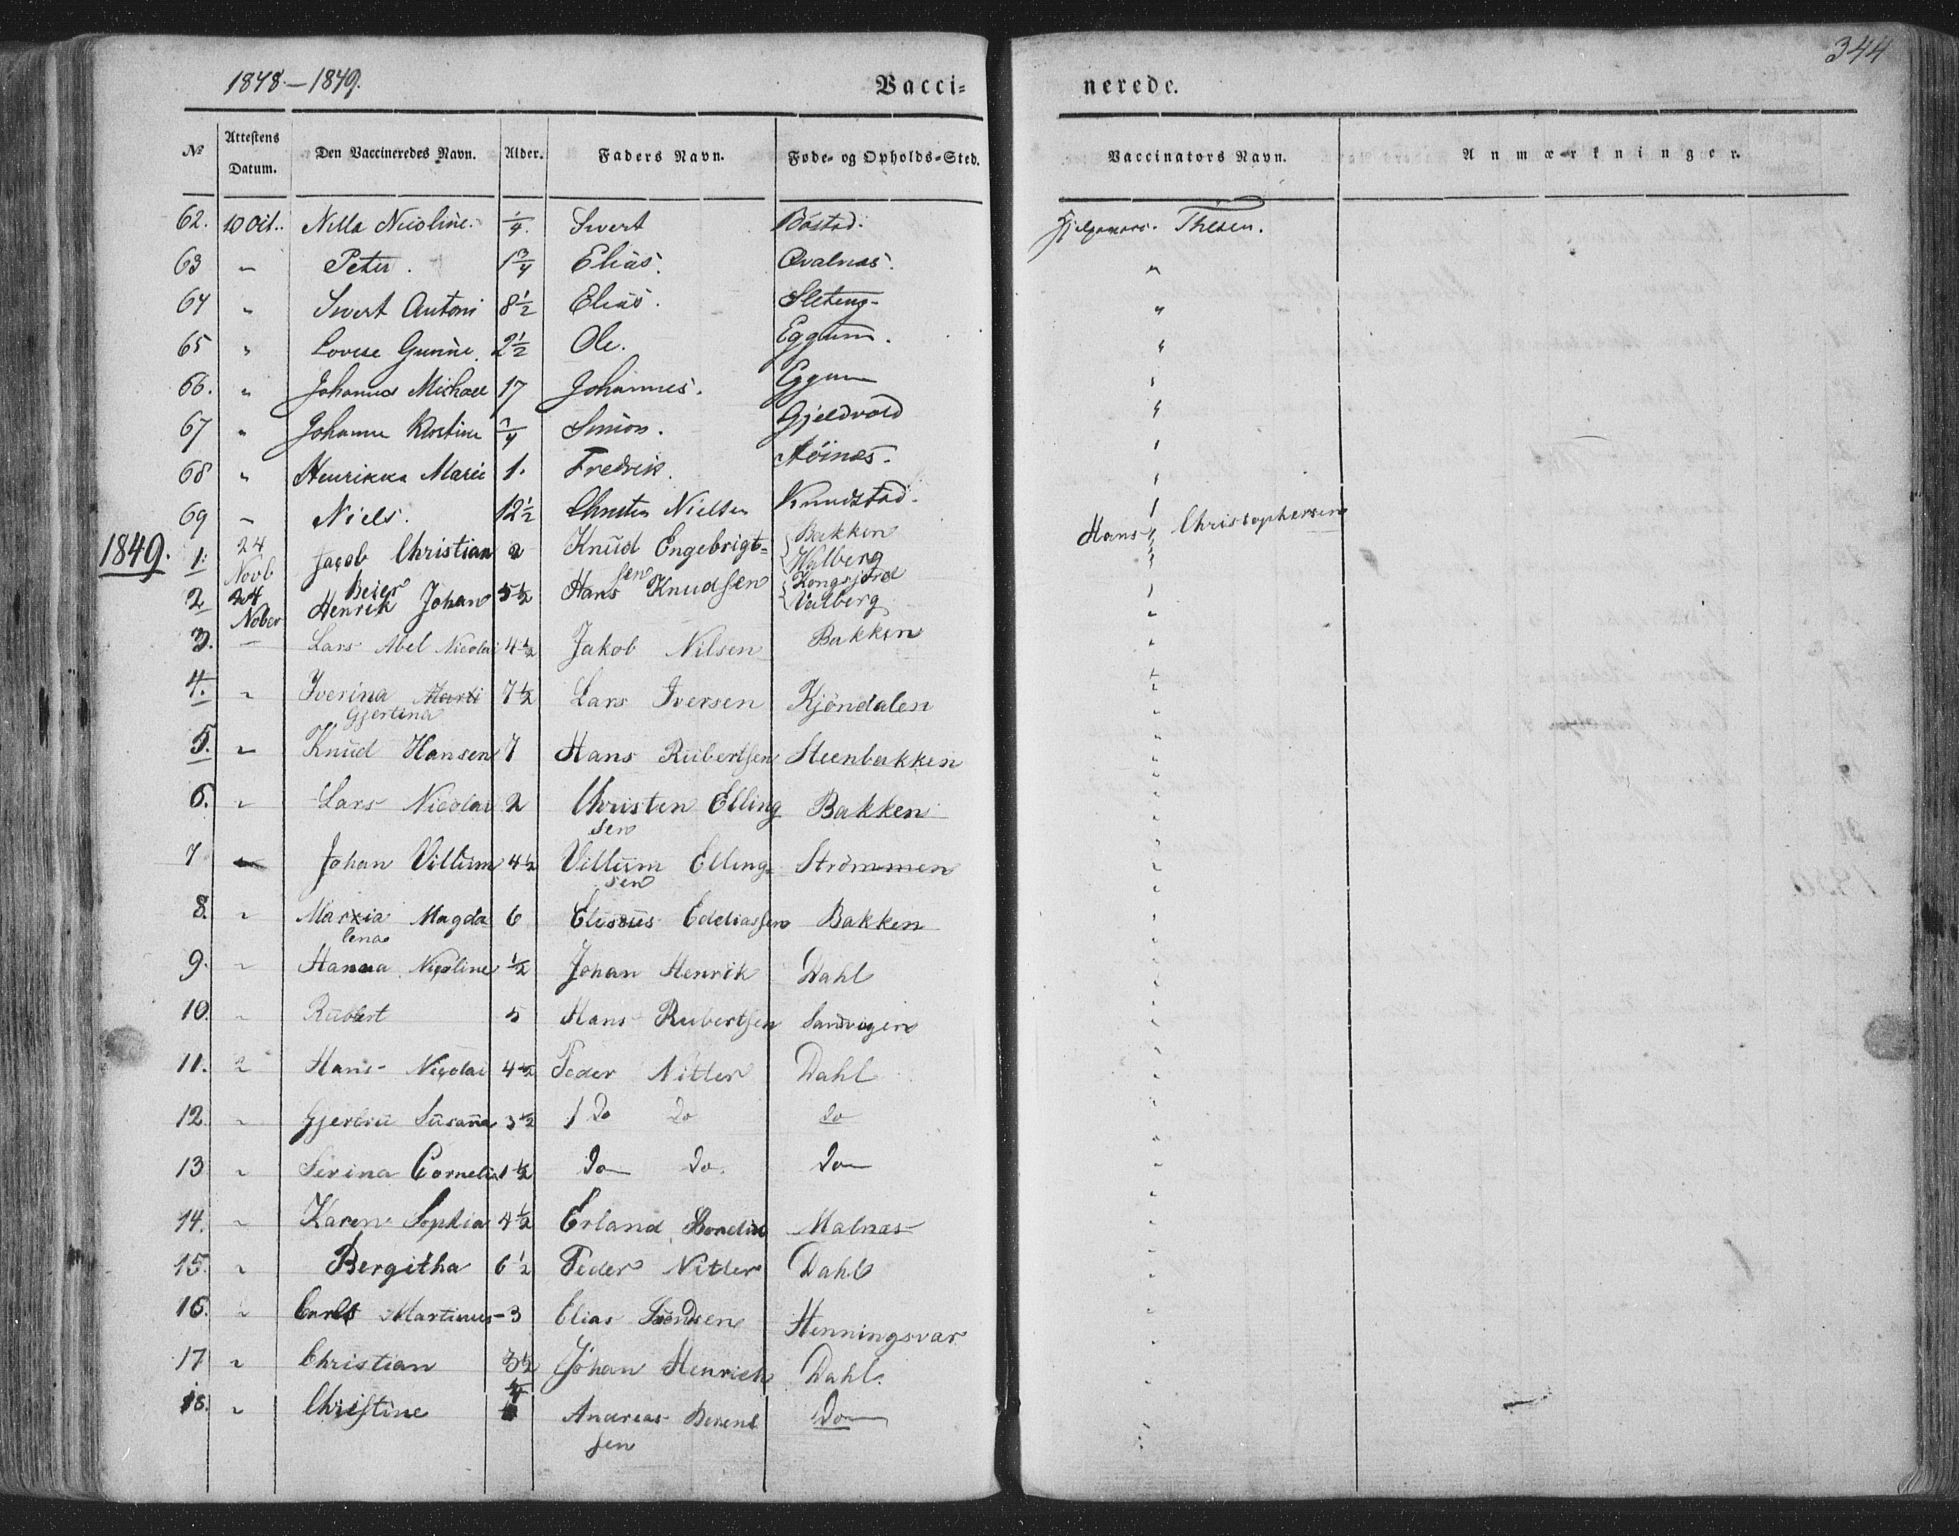 344
1848 – 1849.
Vacci= nerede.
No Attestens Datum. Den Vaccineredes Navn. Alder. Faders Navn. Føde- og Opholds-Sted. Vaccinators Navn. Anmærkninger.
62. 10 Oct. Nilla Nicoline. 1/4. Sivert Bøstad. Thesen.
63 " Peter. 1 3/4 Elias. Qvalnæs.
64 " Sivert Antoni 8 1/2 Elias. "
65 " Lovise Gunine. 2 1/2 Ole. Eggum. "
66. " Johannes Michael 17 Johannes. Eggum "
67 " Johanne Kirstine 3/4 Simon. Gjeldvold "
68 " Henrikka Marie 1. Fredrik. Høinæs. "
69 " Niels. 12 1/2 Christen Nielsen Knudstad. "
1849.
1. 24 Novb Jacob Christian 2 Knud Engebrigt= {Bakken Hans Christophersen
Beier sen Walberg
2 24 Henrik Johan 5 1/2 Hans Knudsen {Kongsjord
Nober Valberg
3. — Lars Abel Nicolai 4 1/2 Jakob Nilsen Bakken "
4. " Iverina Marti 7 1/2 Lars Iversen Kjöndalen "
Gjertina
5. " Knud Hansen 7 Hans Rubertsen Steenbakken "
6. " Lars Nicolai 2 Christen Elling Bakken "
sen
7 " Johan Villum 4 1/2 Villum Elling= Strömmen "
sen
8. " Marxia Magda 6 Elisæus Eddiassen Bakken "
lena
9. " Hanna Nicoline 1/2 Johan Henrik Dahl "
10. " Rubert 5 Hans Rubertsen Sandvigen "
11. " Hans Nicolai 4 1/2 Peder Nitter Dahl "
12. " Gjertru Susanna 3 1/2 do do do "
13 " Serina Cornelia 1 1/2 do do do "
14. " Karen Sophia 4 1/2 Erland Malnæs "
15. " Bergitha 6 1/2 Peder Nitter Dahl "
16. " Carl Martinus 3 Elias Henningsvær "
17 " Christian 3 1/2 Johan Henrich Dahl. "
18. " Christine Andreas Berent Do "
sen